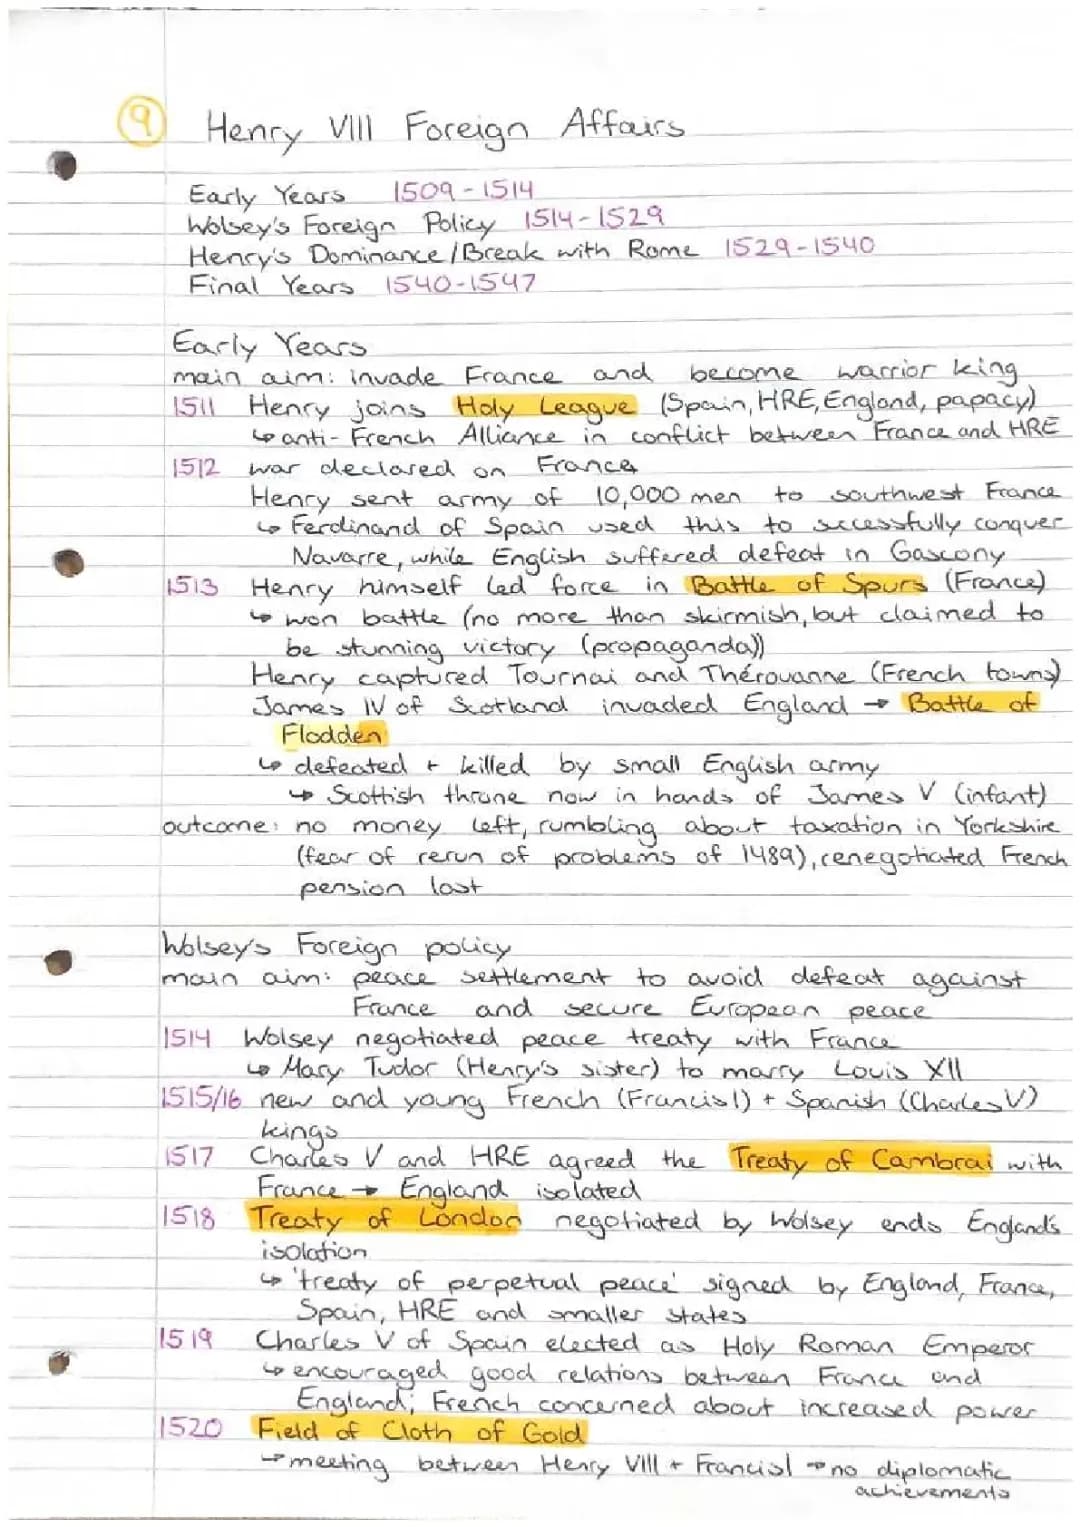 9 Henry VIII Foreign Affairs
Early Years 1509-1514
Wolsey's Foreign Policy 1514-1529
Henry's Dominance/Break with Rome 1529-1540
Final Years 1540-1547
Early Years
main aim: invade France and become warrior king
1511 Henry joins Holy League (Spain, HRE, England, papacy)
↳ anti-French Alliance in conflict between France and HRE
1512 war declared on France
Henry sent army of 10,000 men to southwest France
↳ Ferdinand of Spain used this to successfully conquer
Navarre, while English suffered defeat in Gascony
1513 Henry himself led force in Battle of Spurs (France)
↳ won battle (no more than skirmish, but claimed to
be stunning victory (propaganda))
Henry captured Tournai and Thérouanne (French towns)
James IV of Scotland invaded England → Battle of
Flodden
↳ defeated + killed by small English army
↳ Scottish throne now in hands of James V (infant)
outcome: no money left, rumbling about taxation in Yorkshire
(fear of rerun of problems of 1489), renegotiated French
pension lost
Wolsey's Foreign policy
main aim: peace settlement to avoid defeat against
France and secure European peace
1514 Wolsey negotiated peace treaty with France
↳ Mary Tudor (Henry's sister) to marry Louis XII
1515/16 new and young French (Francis I) + Spanish (Charles V)
kings
1517 Charles V and HRE agreed the Treaty of Cambrai with
France → England isolated
1518 Treaty of London negotiated by Wolsey ends England's
isolation
↳ 'treaty of perpetual peace' signed by England, France,
Spain, HRE and smaller states
1519 Charles V of Spain elected as Holy Roman Emperor
↳ encouraged good relations between France and
England; French concerned about increased power
1520 Field of Cloth of Gold
→ meeting between Henry VIII + Francis I → no diplomatic
achievements